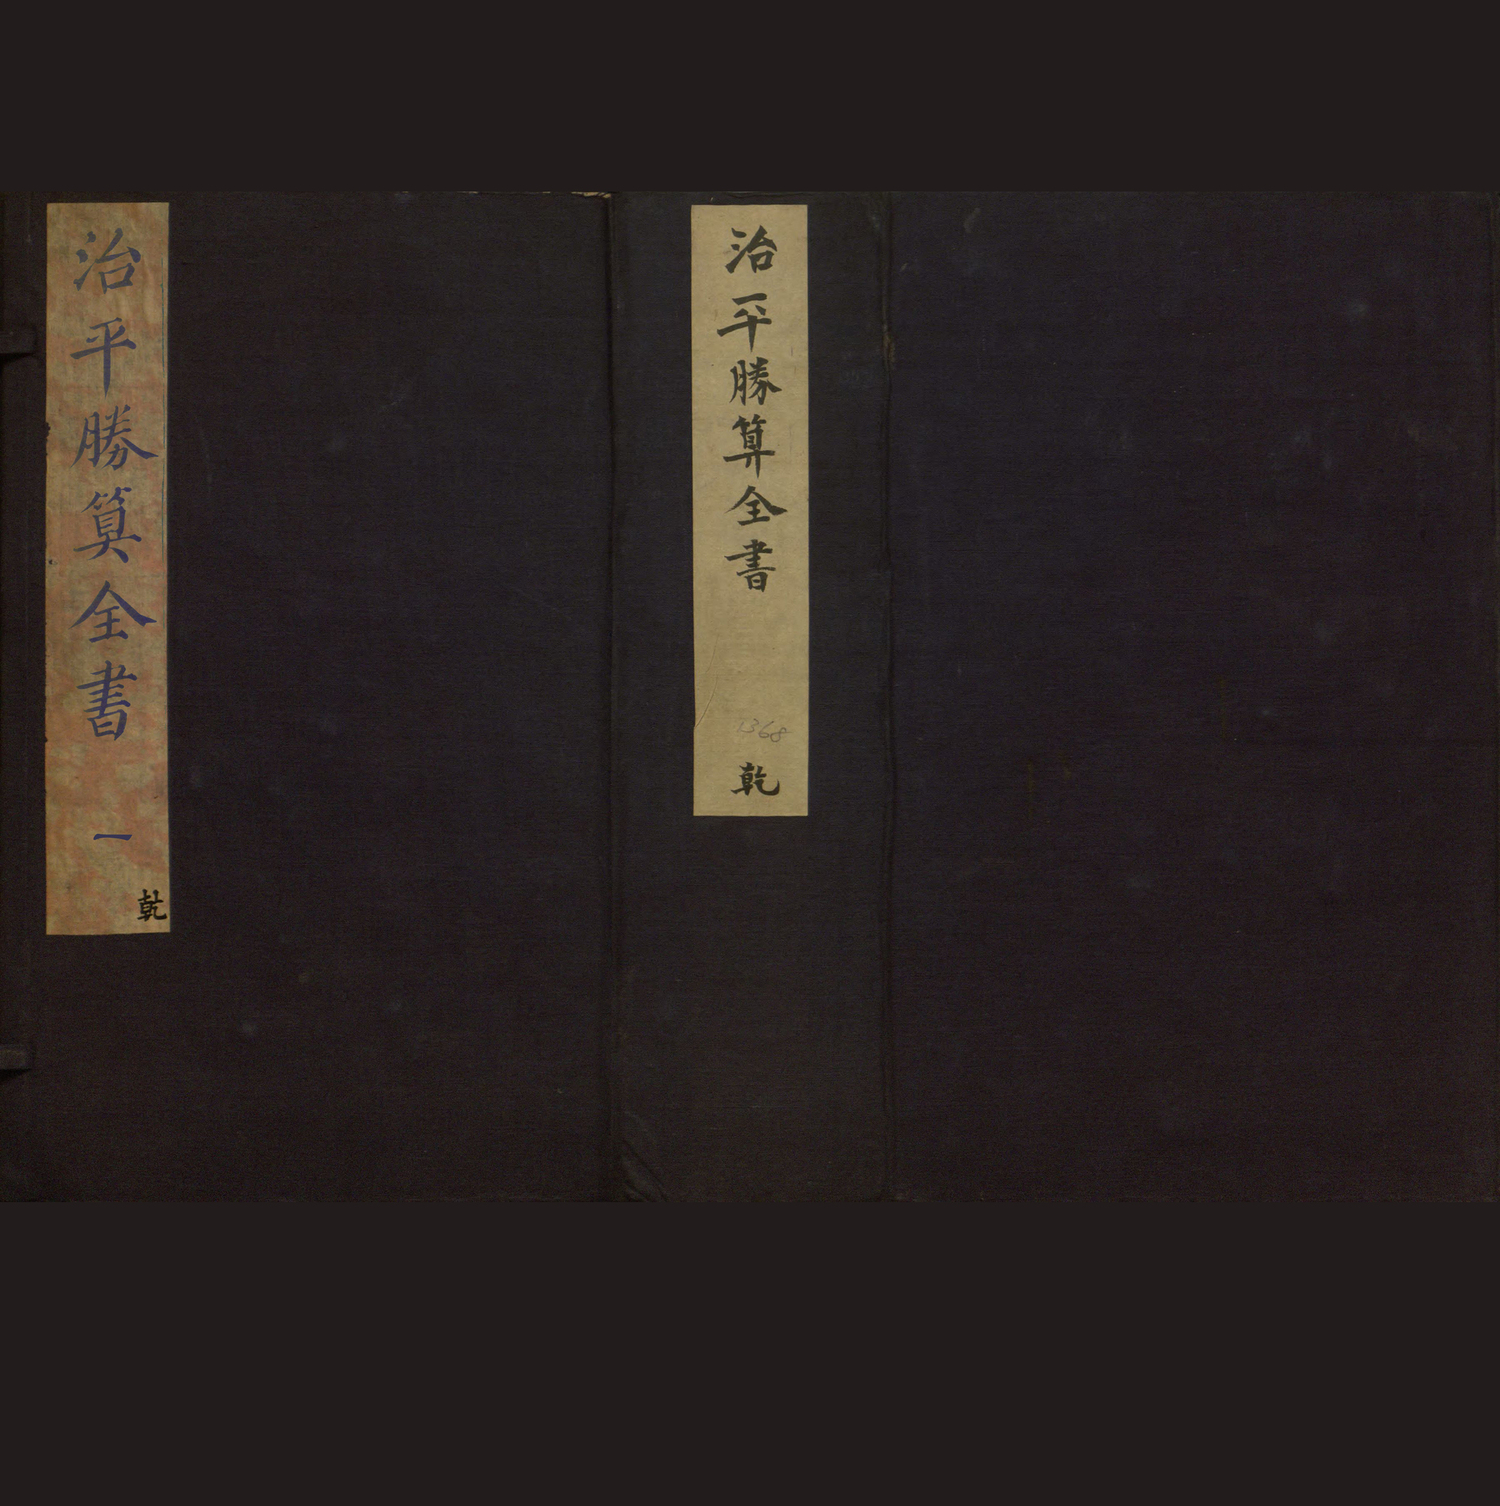 治平勝算全書
1368
乾
治平勝筭全書
一
乾